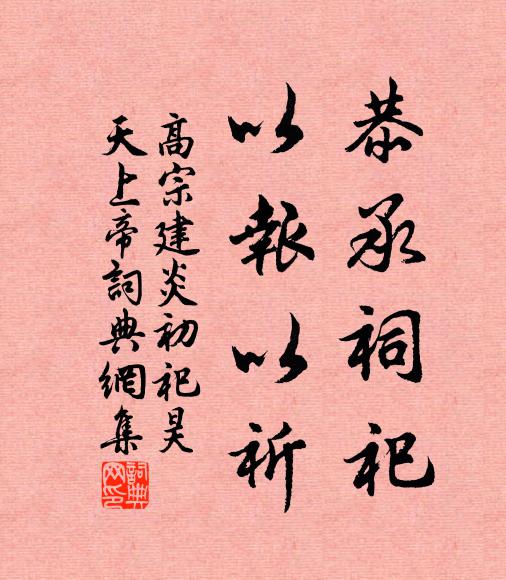 恭承祠祀
以報以祈
高宗建炎初祀昊
天上帝詞典網集
詞典网印